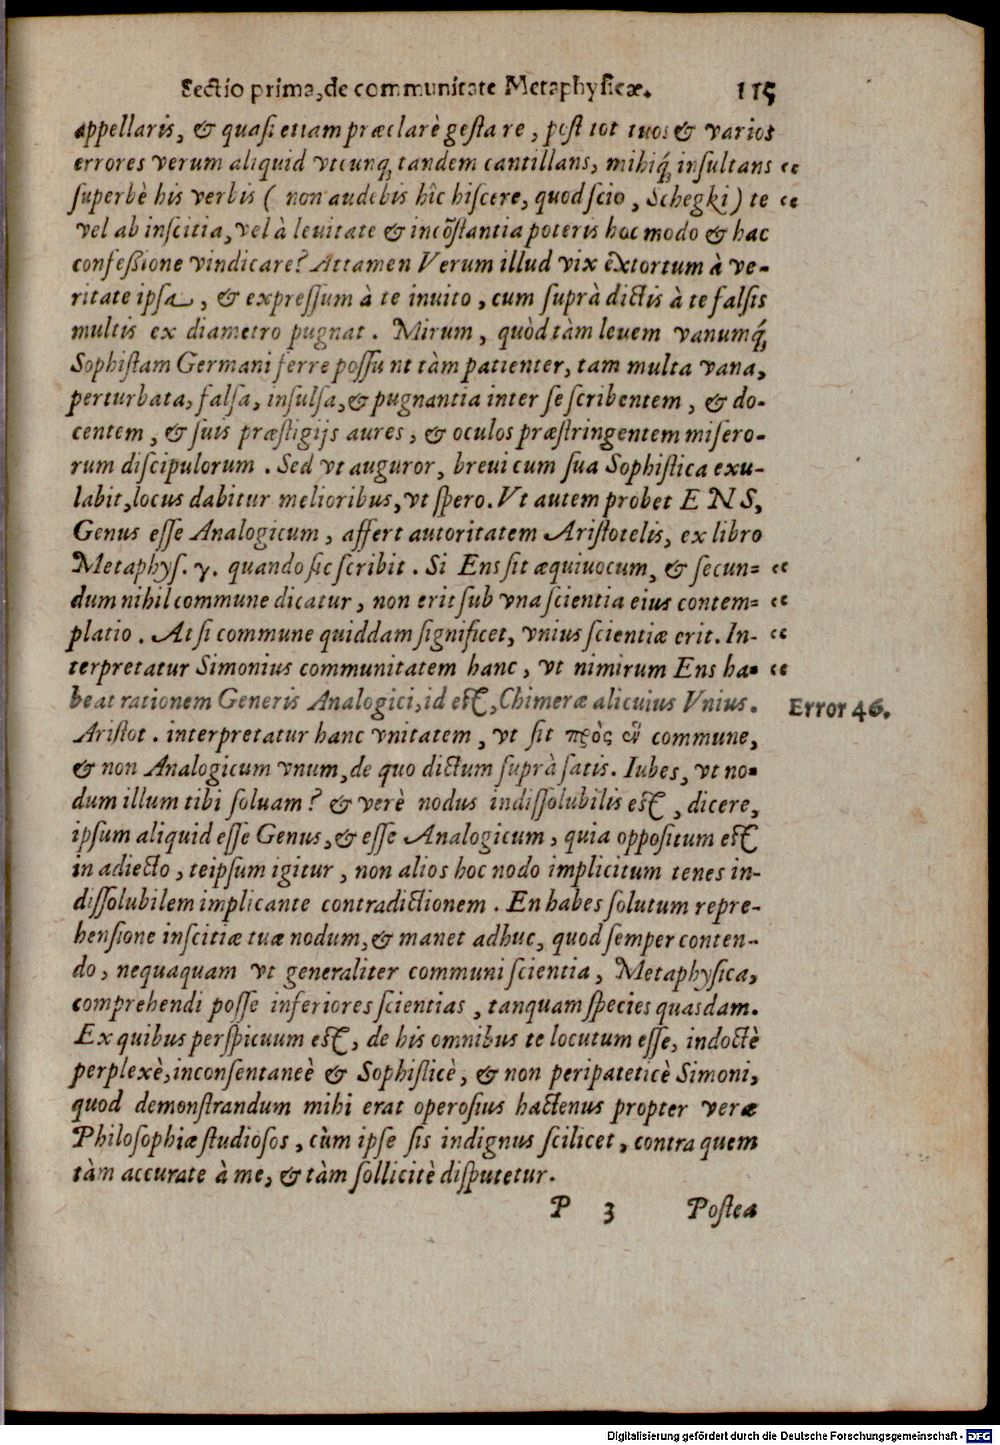 Sectio prima, de communitate Metaphysicæ. 115
appellaris, & quasi etiam præclarè gesta re, post tot tuos & varios
errores verum aliquid vtcunq́; tandem cantillans, mihiq́; insultans “
superbè his verbis ( non audebis hîc hiscere, quod scio, Schegki) te “
vel ab inscitia, vel à leuitate & incõstantia poteris hoc modo & hac
confeßione vindicare? Attamen Verum illud vix extortum à ve-
ritate ipsa, & expressum à te inuito, cum suprà dictis à te falsis
multis ex diametro pugnat. Mirum, quòd tàm leuem vanumq́;
Sophistam Germani ferre possunt tàm patienter, tam multa vana,
perturbata, falsa, insulsa, & pugnantia inter se scribentem, & do-
centem, & suis præstigijs aures, & oculos præstringentem misero-
rum discipulorum. Sed vt auguror, breui cum sua Sophistica exu-
labit, locus dabitur melioribus, vt spero. Vt autem probet ENS,
Genus esse Analogicum, affert autoritatem Aristotelis, ex libro
Metaphys. γ. quando sic scribit. Si Ens sit æquiuocum, & secun= “
dum nihil commune dicatur, non erit sub vna scientia eius contem= “
platio. At si commune quiddam significet, vnius scientiæ erit. In- “
terpretatur Simonius communitatem hanc, vt nimirum Ens ha- “
beat rationem Generis Analogici, id est, Chimeræ alicuius Vnius. Error 46.
Aristot. interpretatur hanc vnitatem, vt sit πρὸς ἓν commune,
& non Analogicum vnum, de quo dictum suprà satis. Iubes, vt no-
dum illum tibi soluam? & verè nodus indissolubilis est, dicere,
ipsum aliquid esse Genus, & esse Analogicum, quia oppositum est
in adiecto, teipsum igitur, non alios hoc nodo implicitum tenes in-
dissolubilem implicante contradictionem. En habes solutum repre-
hensione inscitiæ tuæ nodum, & manet adhuc, quod semper conten-
do, nequaquam vt generaliter communi scientia, Metaphysica,
comprehendi posse inferiores scientias, tanquam species quasdam.
Ex quibus perspicuum est, de his omnibus te locutum esse, indoctè
perplexè, inconsentaneè & Sophisticè, & non peripateticè Simoni,
quod demonstrandum mihi erat operosius hactenus propter veræ
Philosophiæ studiosos, cùm ipse sis indignus scilicet, contra quem
tàm accurate à me, & tàm sollicitè disputetur.
P 3 Postea
Digitalisierung gefördert durch die Deutsche Forschungsgemeinschaft - DFG